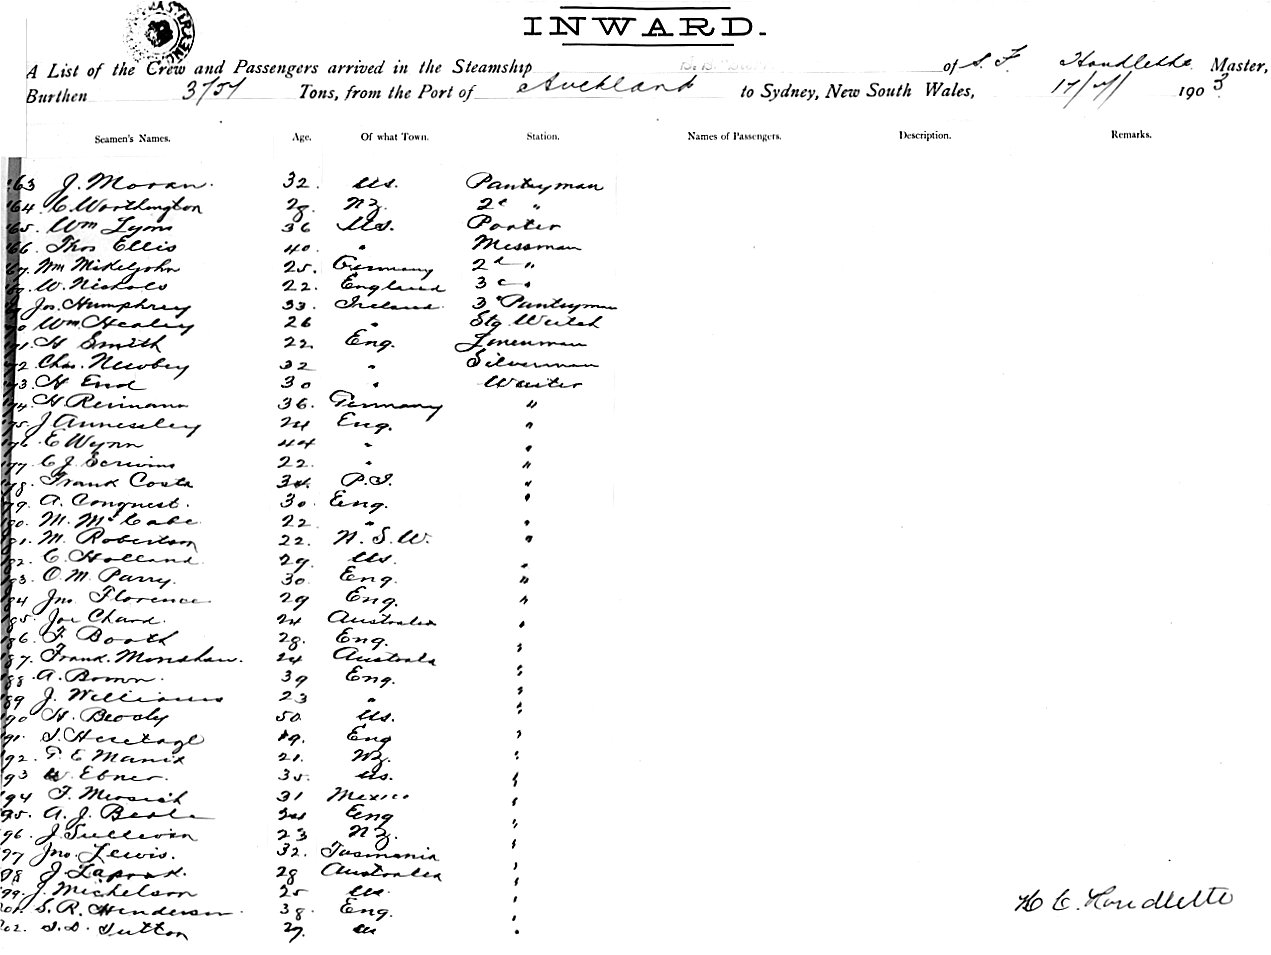 INWARD.
A List of the Crew and Passengers arrived in the Steamship of S. F. Houdlette Master,
Burthen Tons, from the Port of Auckland to Sydney, New South Wales, 17/ 1903
Seamen's Names. Age. Of what Town. Station. Names of Passengers. Description. Remarks.
63 J. Moran. 32. US. Pantryman
64 C. Worthington 28. NZ. 2d "
65. Wm Lyons 36 US. Porter
66. Thos Ellis 40. " Messman
67. Wm Mikeljohn 25. Germany 2d "
W. Nichols 22. England 3d "
Jos. Humphrey 33. Ireland 3d Pantryman
Wm Healey 26 " Stg
H Smith 22. Eng. Linenman
Chas. Newbey 32 " Silverman
H End 30 " Waiter
H. 36. Germany "
J Annesley 24 Eng. "
E Wynn 44 " "
C J. Scrivins 22. " "
Frank Costa 34. P.I. "
A. Conquest. 30. Eng. "
M. McCabe. 22 " "
M. Robertson 22. N. S. W. "
C. Holland 29. US. "
O. M. Parry. 30. Eng. "
Jno. Florence 29 Eng. "
Joe Chard. 24 Australia "
186. F. Booth 28. Eng. "
187. Frank. Monahan. 24 Australa "
188. A. Brown. 39 Eng. "
189 J. Williams 23 " "
190 H. Beody 50. US. "
191. J. Heretage 19. Eng "
192. T. E Manix 21. NZ. "
93 W. Ebner. 35. US. "
94 F. 31 Mexico "
95. A. J. Beale 24 Eng "
96. J. Sullivan 23 NZ. "
97 Jno. Lewis. 32. Tasmania "
98 J. 28 Australia "
99. J. Michelson 25 US. "
S. R. Henderson. 38. Eng. "
202. J. D. Sutton 27. US "
H C. Houdlette